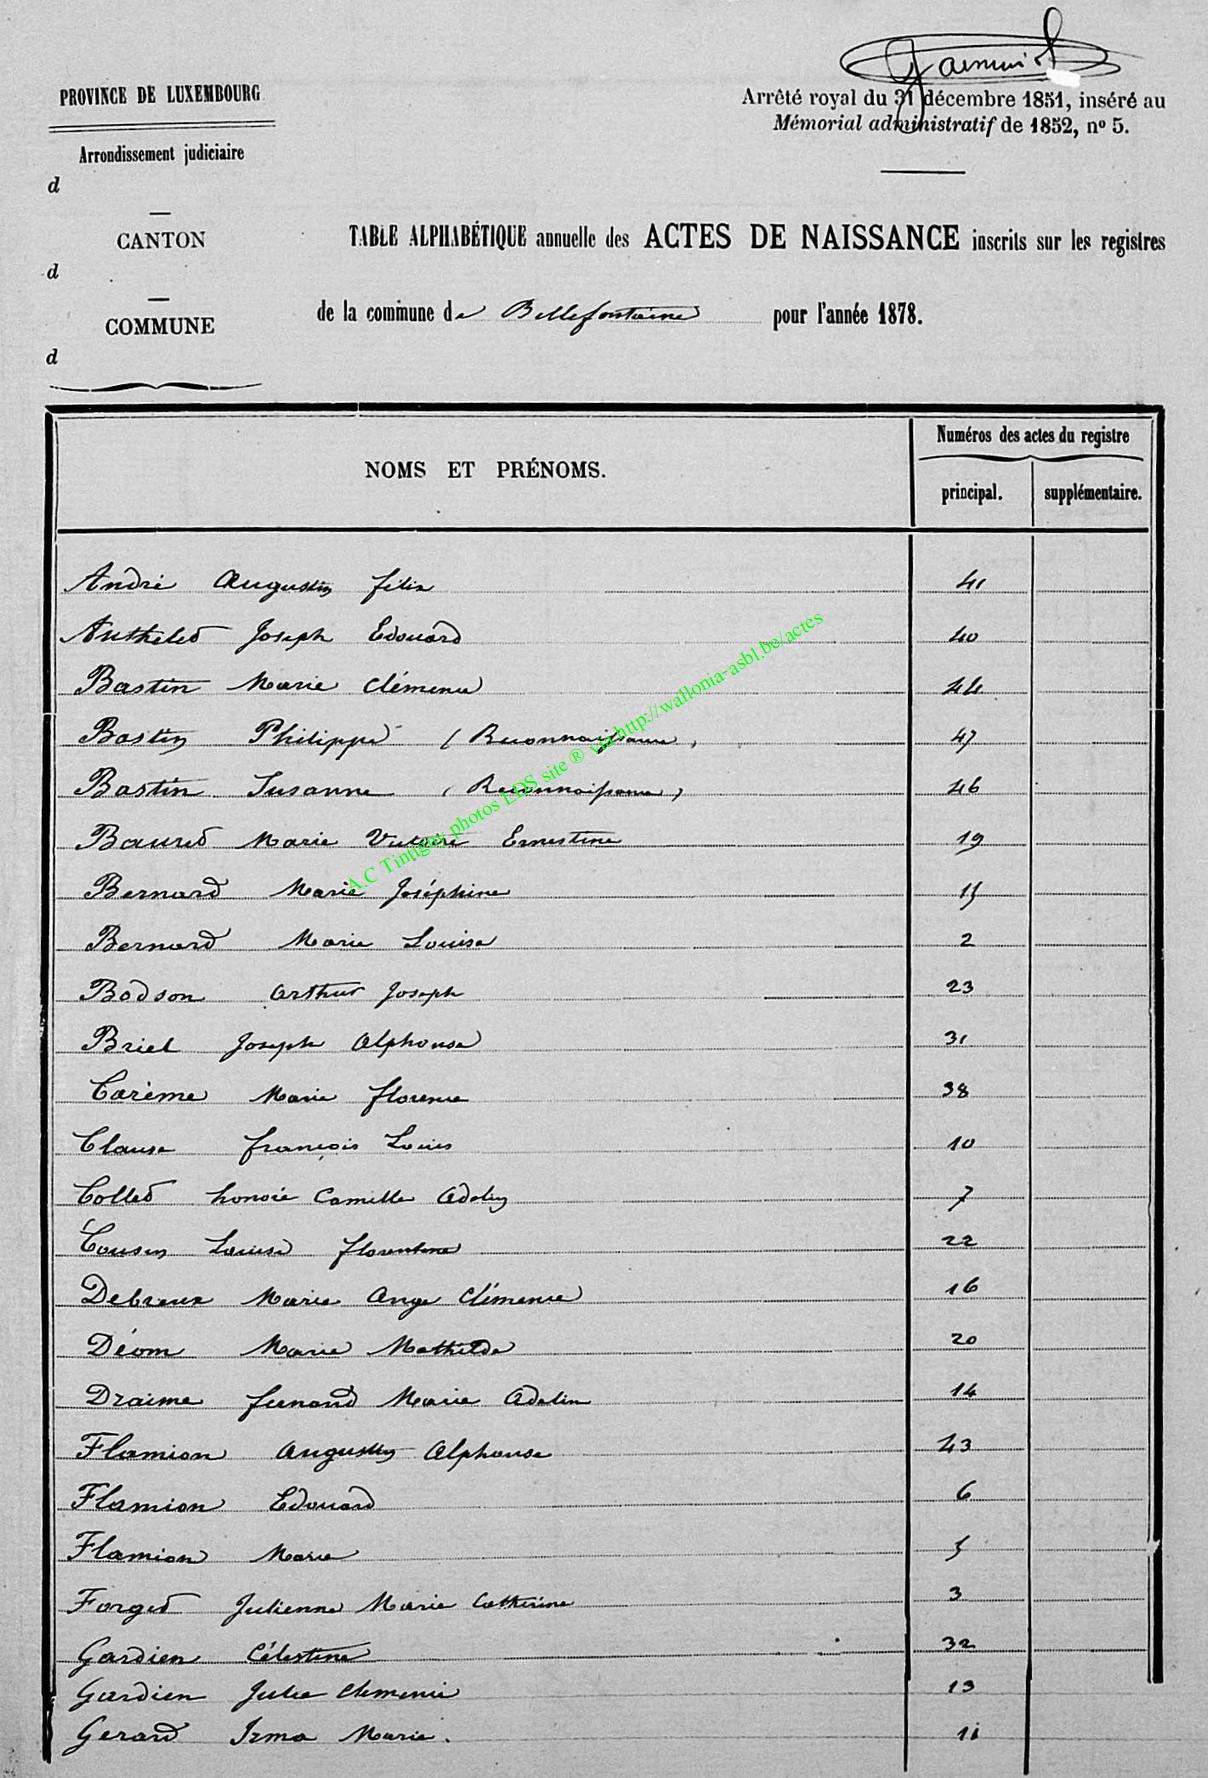 PROVINCE DE LUXEMBOURG
Arrêté royal du 31 décembre 1851, inséré au
Mémorial administratif de 1852, nº 5.
Arrondissement judiciaire
d
CANTON
d
COMMUNE
d
TABLE ALPHABÉTIQUE annuelle des ACTES DE NAISSANCE inscrits sur les registres
de la commune de Bellefontaine pour l'année 1878.
NOMS ET PRÉNOMS.
Numéros des actes du registre
principal. supplémentaire.
André Augustin félix 41
Joseph Edouard 40
Bastin Marie Clémence 44
Bastin Philippe (Reconnaissance) 47
Bastin Susanne (Reconnaissance) 46
Bauret Marie Victoire Ernestine 19
Bernard Marie Joséphine 15
Bernard Marie Louise 2
Bodson Arthur Joseph 23
Briel Joseph Alphonse 31
Carème Marie florence 38
Clause françois Louis 10
Collet honoré Camille Adelin 7
Cousin Louise florentine 22
Debreux Marie Ange Clémence 16
Déom Marie Mathilde 20
Draime fernand Marie Adelin 14
Flamion Augustin Alphonse 43
Flamion Edouard 6
Flamion Marie 5
Forget Julienne Marie Catherine 3
Gardien Célestine 32
Gardien Julie Clemence 13
Gerard Irma Marie. 11
A.C Tintigny photos LDS site ® via http://wallonia-asbl.be/actes